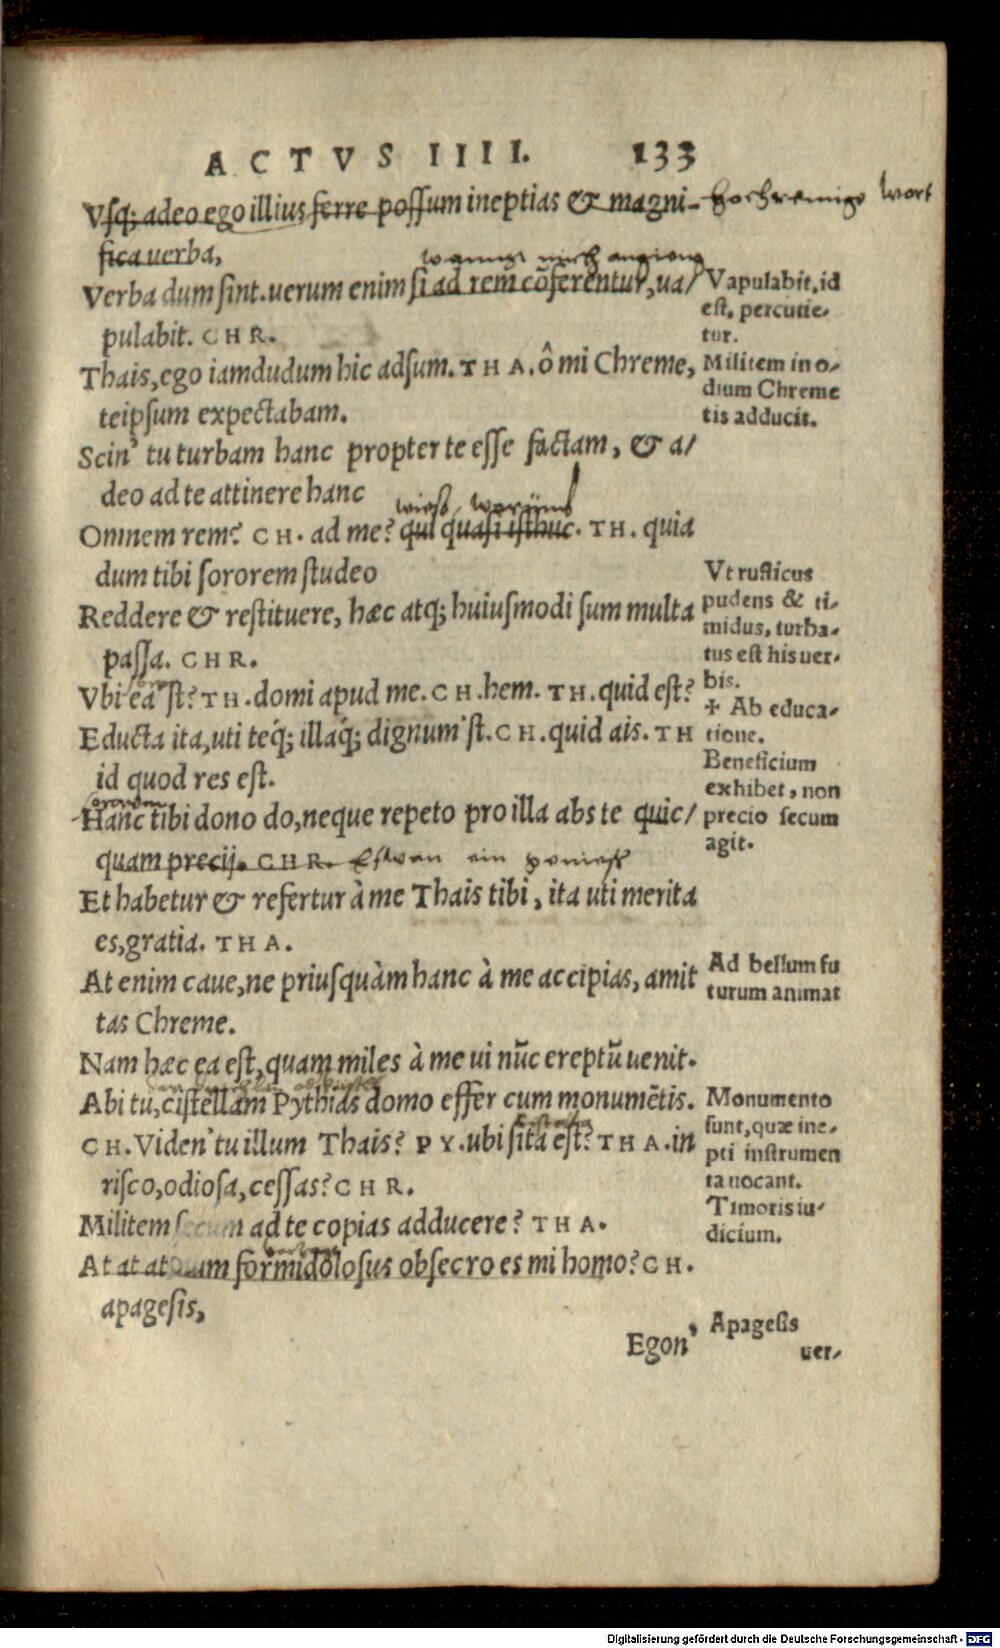 ACTVS IIII. 133
Vsq; adeo ego illius ferre possum ineptias & magni-
fica uerba,
Verba dum sint. uerum enim si ad rem cõferentur, ua/
pulabit. CHR.
Thais, ego iamdudum hic adsum. THA. ô mi Chreme,
teipsum expectabam.
Scin' tu turbam hanc propter te esse factam, & a/
deo ad te attinere hanc
Omnem rem? CH. ad me? qui quasi isthuc. TH. quia
dum tibi sororem studeo
Reddere & restituere, hæc atq; huiusmodi sum multa
passa. CHR.
Vbi ea'st? TH. domi apud me. CH. hem. TH. quid est?
Educta ita, uti teq́; illaq́; dignum'st. CH. quid ais. TH
id quod res est.
sororem
Hanc tibi dono do, neque repeto pro illa abs te quic/
quam precij. CHR.
Et habetur & refertur à me Thais tibi, ita uti merita
es, gratia. THA.
At enim caue, ne priusquàm hanc à me accipias, amit
tas Chreme.
Nam hæc ea est, quam miles à me ui nũc ereptũ uenit.
Abi tu, cistellam Pythias domo effer cum monumẽtis.
CH. Viden' tu illum Thais? PY. ubi sita est? THA. in
risco, odiosa, cessas? CHR.
Militem secum ad te copias adducere? THA.
At at at quam formidolosus obsecro es mi homo? CH.
apagesis,
Egon'
wort
Vapulabit, id
est, percutie-
tur.
Militem in o-
dium Chreme
tis adducit.
Vt rusticus
pudens & ti-
midus, turba-
tus est his uer-
bis.
✠ Ab educa-
tione.
Beneficium
exhibet, non
precio secum
agit.
Ad bellum fu
turum animat
Monumento
sunt, quæ ine-
pti instrumen
ta uocant.
Timoris iu-
dicium.
Apageßs
uer-
Digitalisierung gefördert durch die Deutsche Forschungsgemeinschaft - DFG